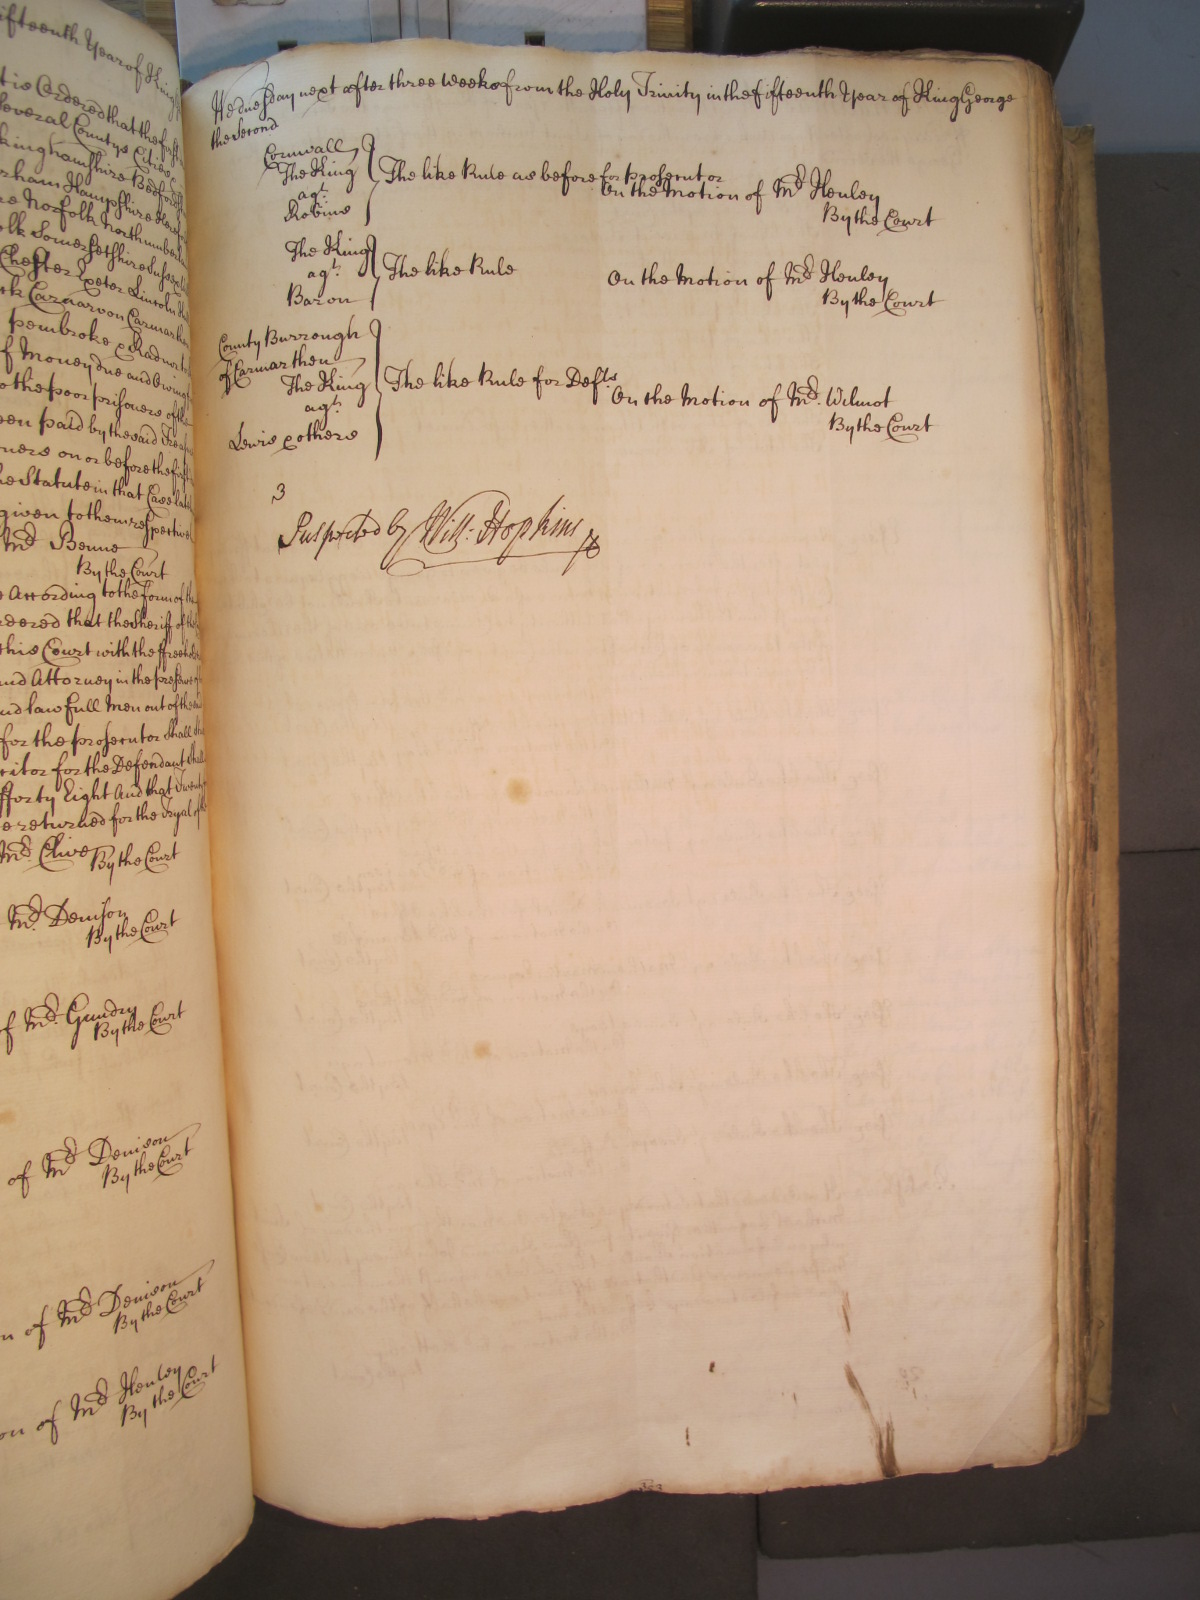 ifteenth Year of King
t is Ordered that the first
several Countys Cities
kinghamshire Bedford
rham Hampshire Here
re Norfolk Northumber
olk Somersetshire Sussex
Chester Exeter Lincoln
rk Carnarvon Carmarthen
pembroke & Radnor
f Money due and Owing
o the poor prisoners of the
een paid by the said Treas
ners on or before the first
he Statute in that Case late
given to them respective
Mr. Benne
By the Court
e According to the form of the
rdered that the Sheriff of the
this Court with the ffreehold
and Attorney in the presence of
and lawfull Men out of the
for the prosecutor Shall
citor for the Defendant Shall
fforty Eight And that Twenty
e returned for the Tryal of
Mr. Clive By the Court
Mr. Denison
By the Court
of Mr. Gundry
By the Court
of Mr. Denison
By the Court
n of Mr. Denison
By the Court
on of Mr. Henley
By the Court
Wednesday next after three Weeks from the Holy Trinity in the fifteenth Year of King George
the Second
Cornwall
The King
agt.
Robins
The like Rule as before for prosecutor
On the Motion of Mr. Henley
By the Court
The King
agt.
Baron
The like Rule
On the Motion of Mr. Henley
By the Court
County Burrough
of Carmarthen
The King
agt.
Lewis & others
The like Rule for Defts.
On the Motion of Mr. Wilmot
By the Court
3
Inspected by Will: Hopkins